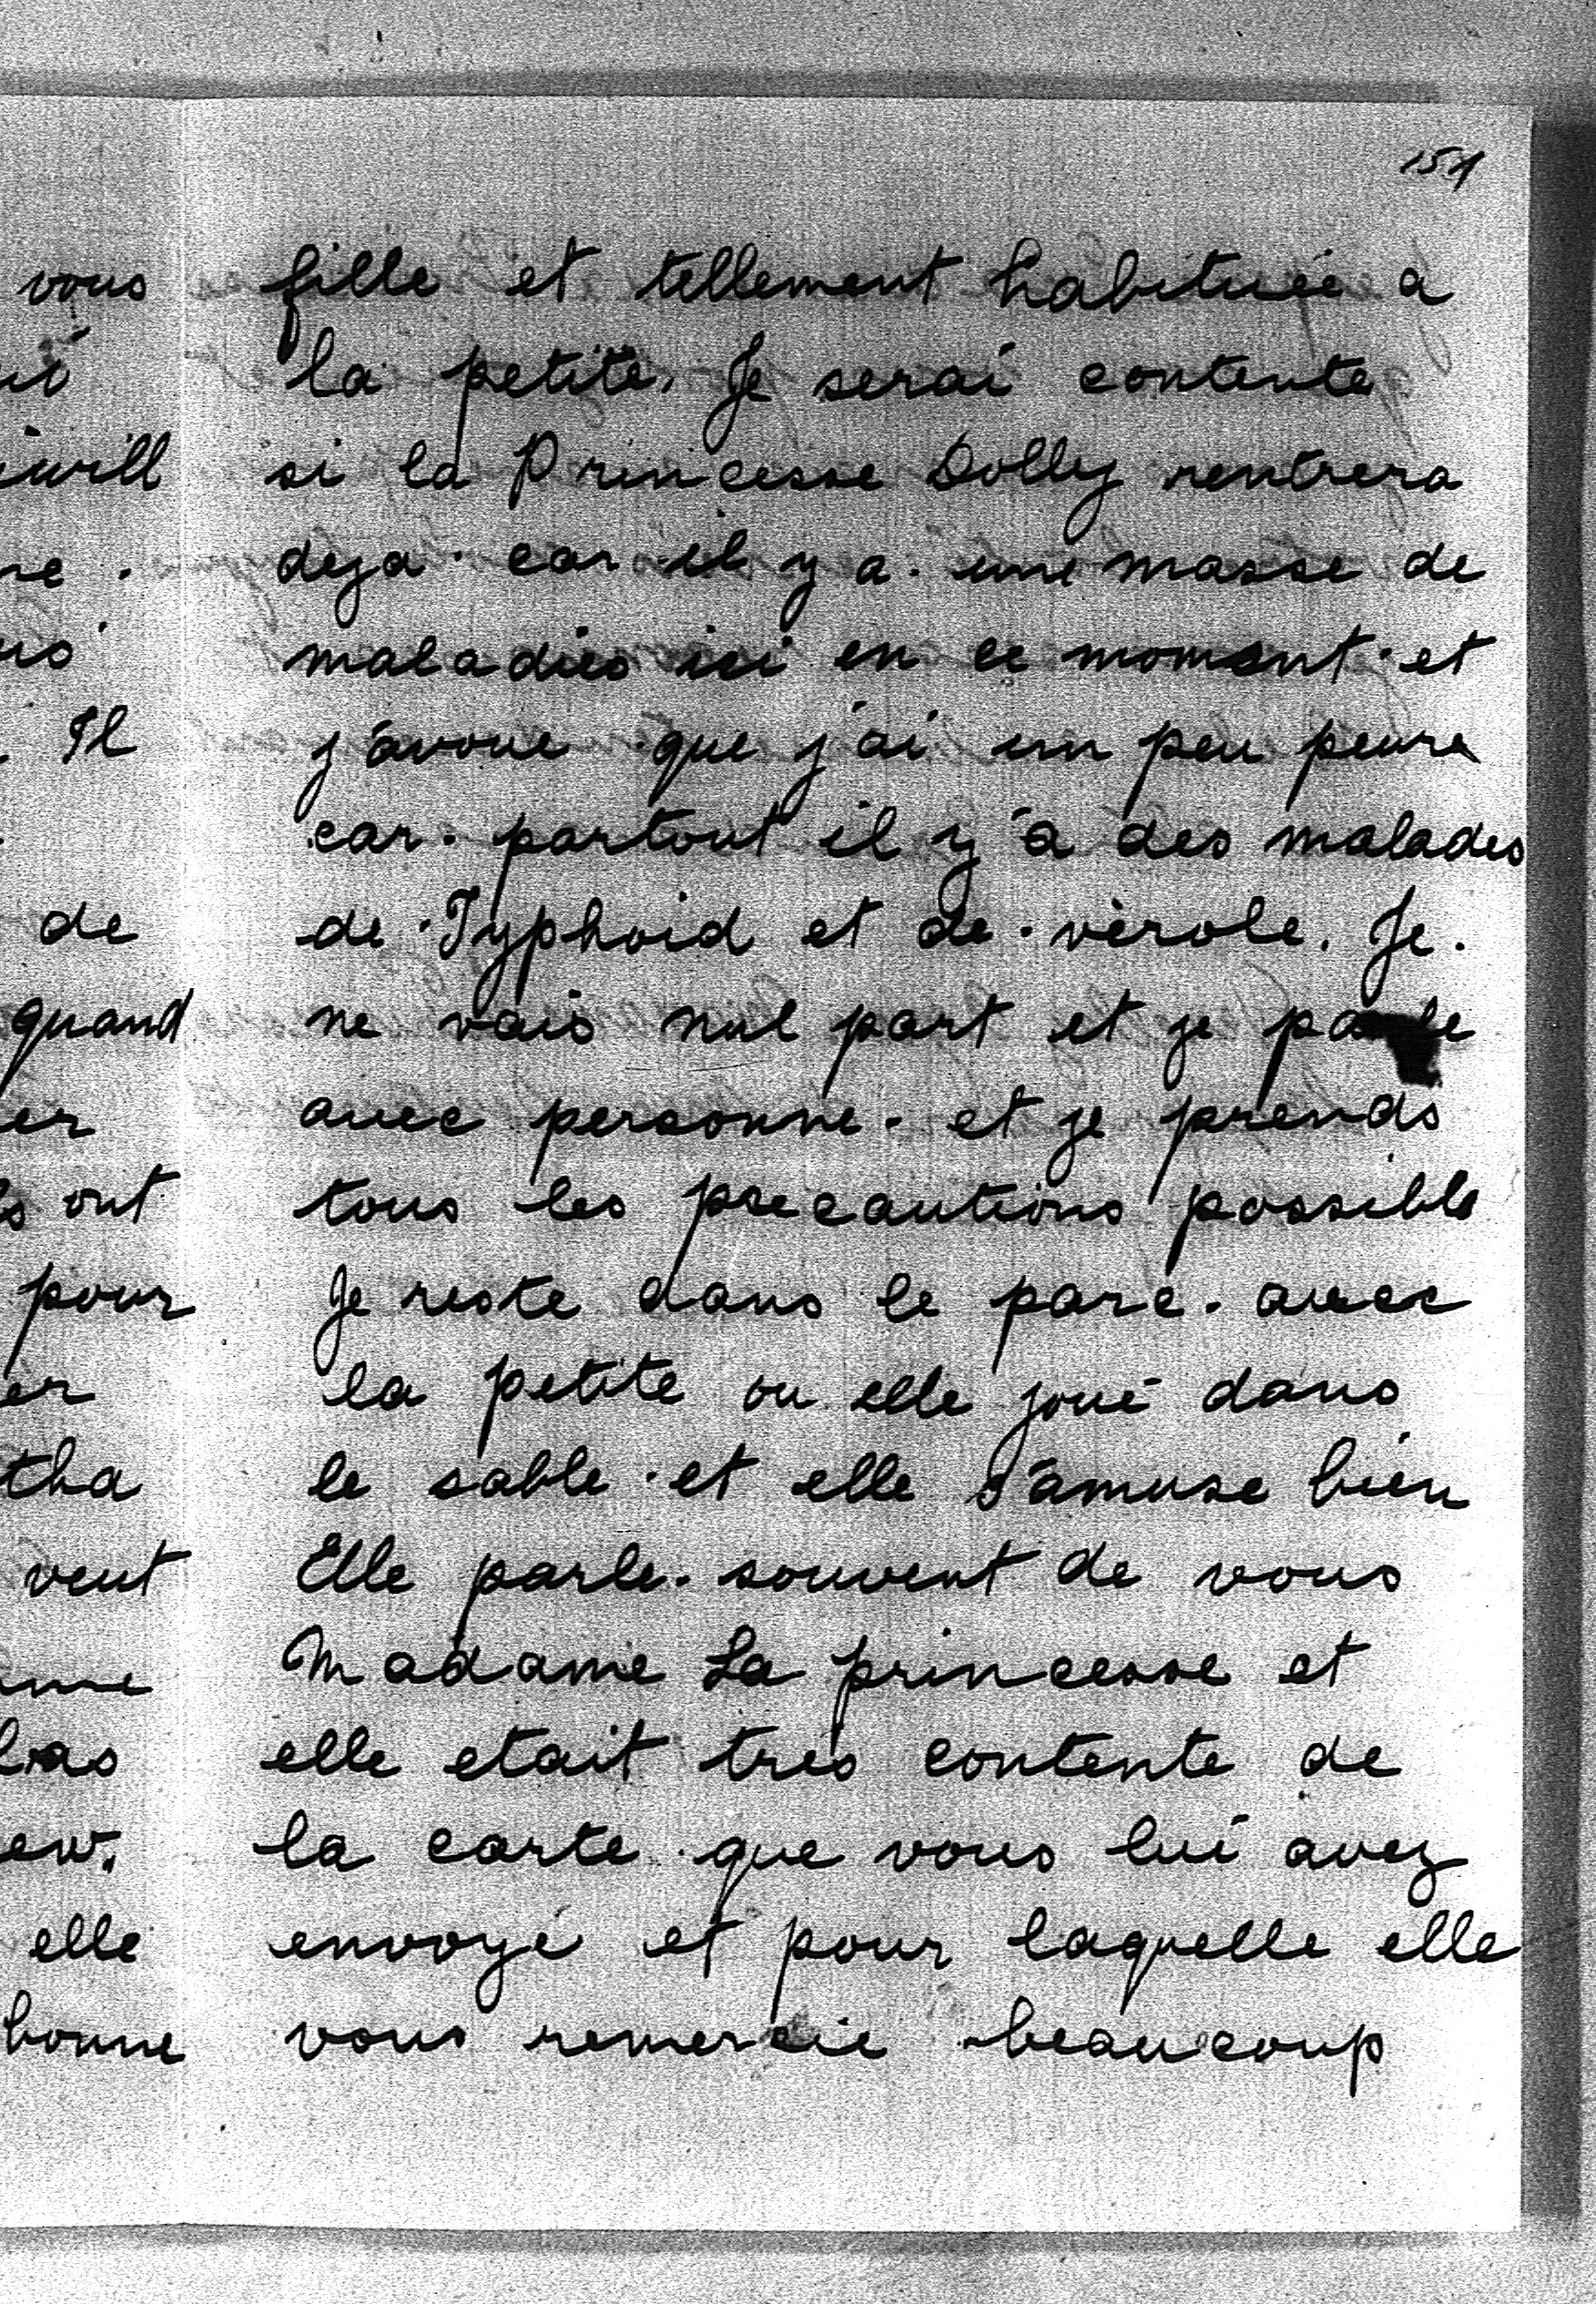 151
fille et tellement habituée a
la petite. Je serai contente
si la Princesse Dolly rentrera
deja. car il y a. une masse de
maladies ici en ce moment. et
j'avoue que j'ai un peu peur
car. partout il y'a des malades
de Typhoid et de. vèrole. Je.
ne vais nul part et je parle
avec personne. et je prends
tous les precautions possible
Je reste dans le parc. avec
la petite ou elle joue dans
le sable. et elle s'amuse bien
Elle parle. souvent de vous
Madame La princesse et
elle etait tres contente de
la carte. que vous lui avez
envoyé et pour laquelle elle
vous remercie beaucoup
vous
Il
de
quand
ont
pour
veut
elle
bonne